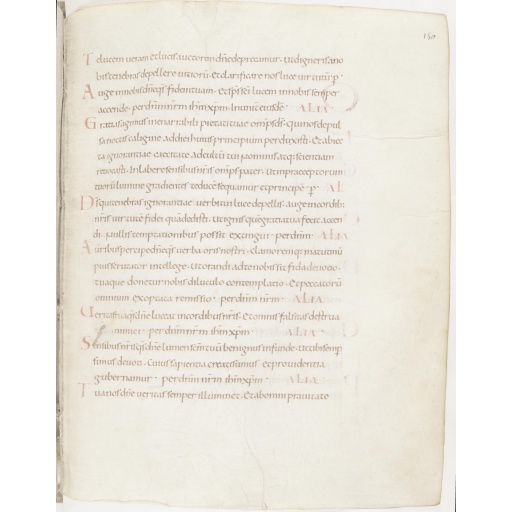 150
Te lucem ueram et lucis auctorem dne deprecamur · ut digneris a no
bis tenebras depellere uitiorū · et clarificare nos luce uirtutū · p̄
Auge in nobis dne q̄s fidem tuam · et sps sci lucem in nobis semper
accende · per dnm nrm ihm xpm · in unit eiusdē · ALIA
Gratias agimus inenarrabili pietati tuae omps ds · qui nos depul
sa noctis caligine ad diei huius principium perduxisti · et abiec
ta ignorantiae caecitate ad cultū tui nominis atq; scientiam
reuocasti · Inlabere sensibus nris omps pater · ut in praeceptorum
tuorū lumine gradientes te ducē sequamur et principē · p̄ · AL
Ds qui tenebras ignorantiae uerbi tui luce depellis · auge in cordib;
nris uirtutē fidei quā dedisti · ut ignis quē gratia tua fecit accen
di · nullis temptationibus possit extingui · per dnm · ALIA
Auribus percipe dne q̄s uerba oris nostri · clamoremq; matutinū
pius scrutator intellege · ut orandi ad te nobis sit fida deuotio ·
tuaque donetur nobis diluculo contemplatio · et peccatorū
omnium exoptata remissio · per dnm nrm · ALIA
Ueritas tua q̄s dne luceat in cordibus nris · et omnis falsitas destrua
inimici · per dnm nrm ihm xpm · ALIA ·
Sensibus nris q̄s dne lumen scm tuū benignus infunde · ut tibi semp
simus deuoti · cuius sapientia creati sumus et prouidentia
gubernamur · per dnm nrm ihm xpm · ALIA
Tua nos dne ueritas semper illuminet · et ab omni prauitate